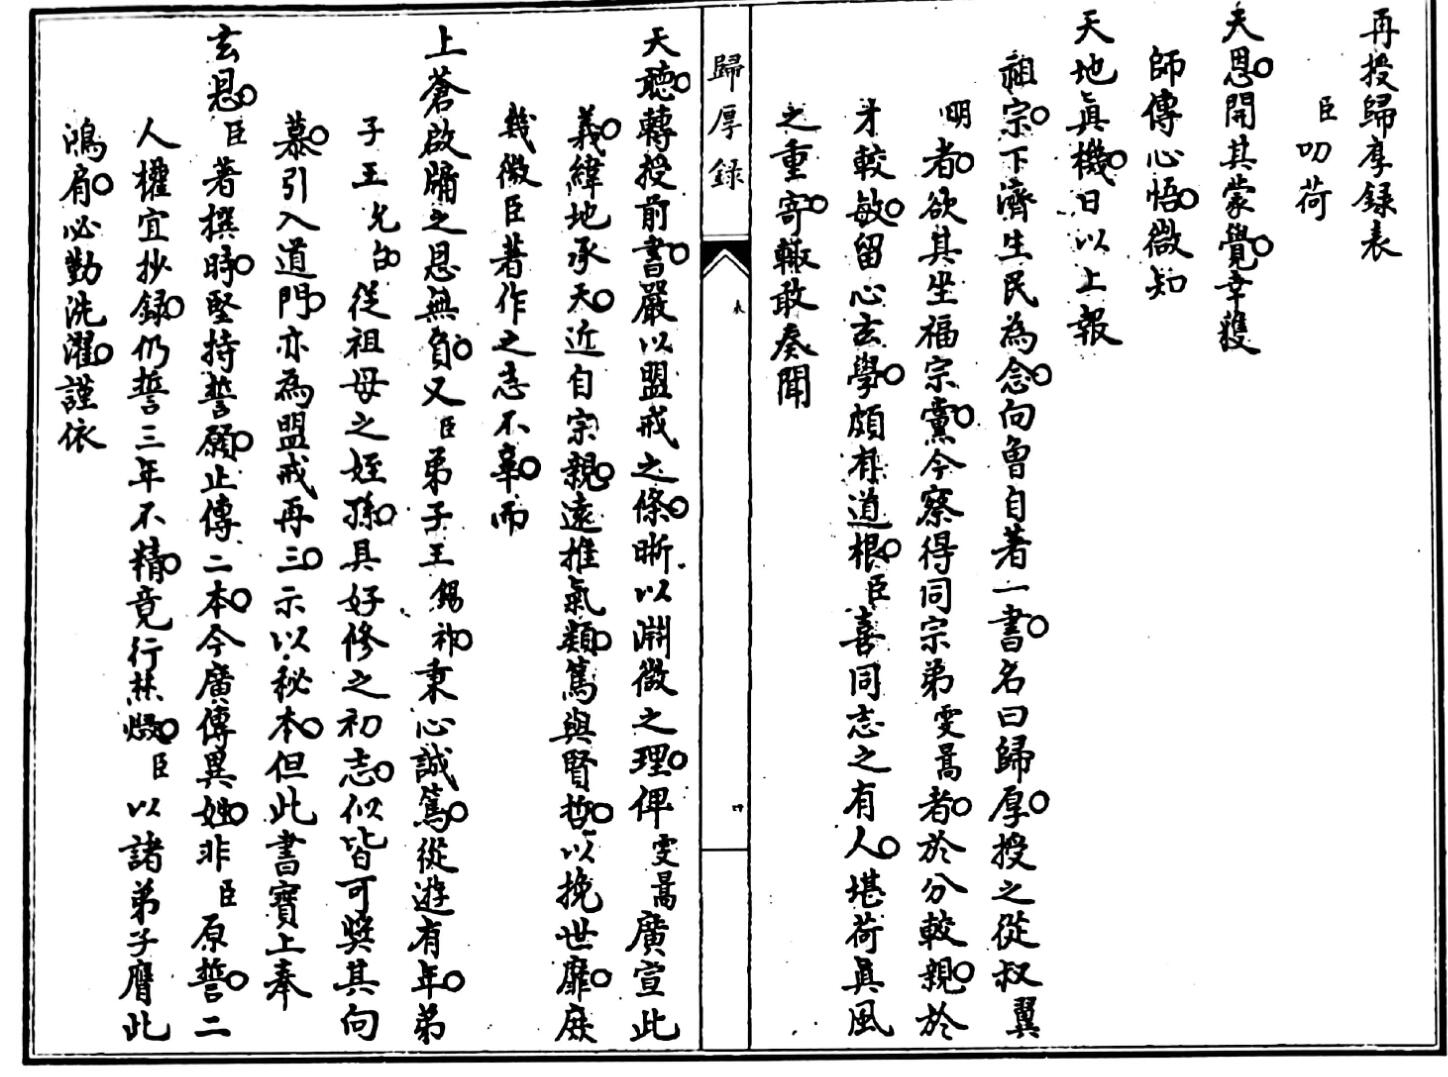 再授歸厚錄表
臣叨荷
天恩開其蒙覺幸獲
師傳心悟微知
天地真機日以上報
祖宗下濟生民為念向曾自著一書名曰歸厚授之從叔翼
明者欲其坐福宗黨今察得同宗弟雯暠者於分較親於
才較敏留心玄學頗有道根臣喜同志之有人堪荷真風
之重寄輙敢奏聞
歸厚錄
表
四
天聽轉授前書嚴以盟戒之條晰以淵微之理俾雯暠廣宣此
義緯地承天近自宗親遠推氣類篤與賢哲以挽世靡庶
幾微臣著作之志不辜而
上蒼啟牖之恩無負又臣弟子王錫祚秉心誠篤從遊有年弟
子王允台從祖母之姪孫具好修之初志似皆可獎其向
慕引入道門亦為盟戒再三示以秘本但此書寶上奉
玄恩臣著撰時堅持誓願止傳二本今廣傳異姓非臣原誓二
人權宜抄錄仍誓三年不精竟行焚燬臣以諸弟子膺此
鴻肩必勤洗濯謹依